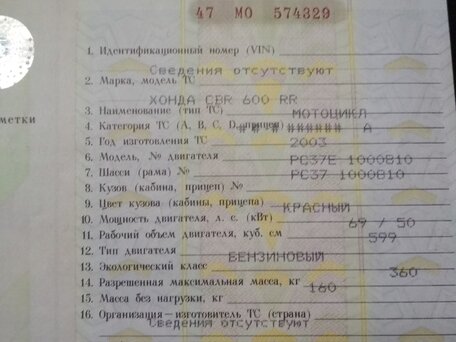 47 МО 574329
1. Идентификационный номер (VIN)
Сведения отсутствуют
2. Марка, модель ТС
ХОНДА CBR 600 RR
3. Наименование (тип ТС) МОТОЦИКЛ
4. Категория ТС (A, B, C, D, прицеп) ###### A
5. Год изготовления ТС 2003
6. Модель, № двигателя PC37E 1000810
7. Шасси (рама) № PC37 1000810
8. Кузов (кабина, прицеп) №
9. Цвет кузова (кабины, прицепа) КРАСНЫЙ
10. Мощность двигателя, л. с. (кВт) 69 / 50
11. Рабочий объем двигателя, куб. см 599
12. Тип двигателя БЕНЗИНОВЫЙ
13. Экологический класс
14. Разрешенная максимальная масса, кг 360
15. Масса без нагрузки, кг 160
16. Организация—изготовитель ТС (страна)
Сведения отсутствуют
метки